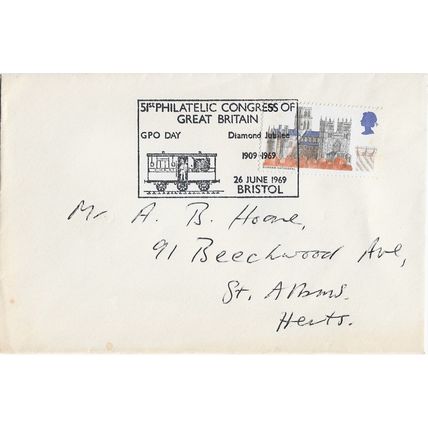 51ST PHILATELIC CONGRESS OF
GREAT BRITAIN
GPO DAY Diamond Jubilee
1909-1969
26 JUNE 1969
BRISTOL
Mr A. B. Hoare,
91 Beechwood Ave,
St. Albans.
Herts.